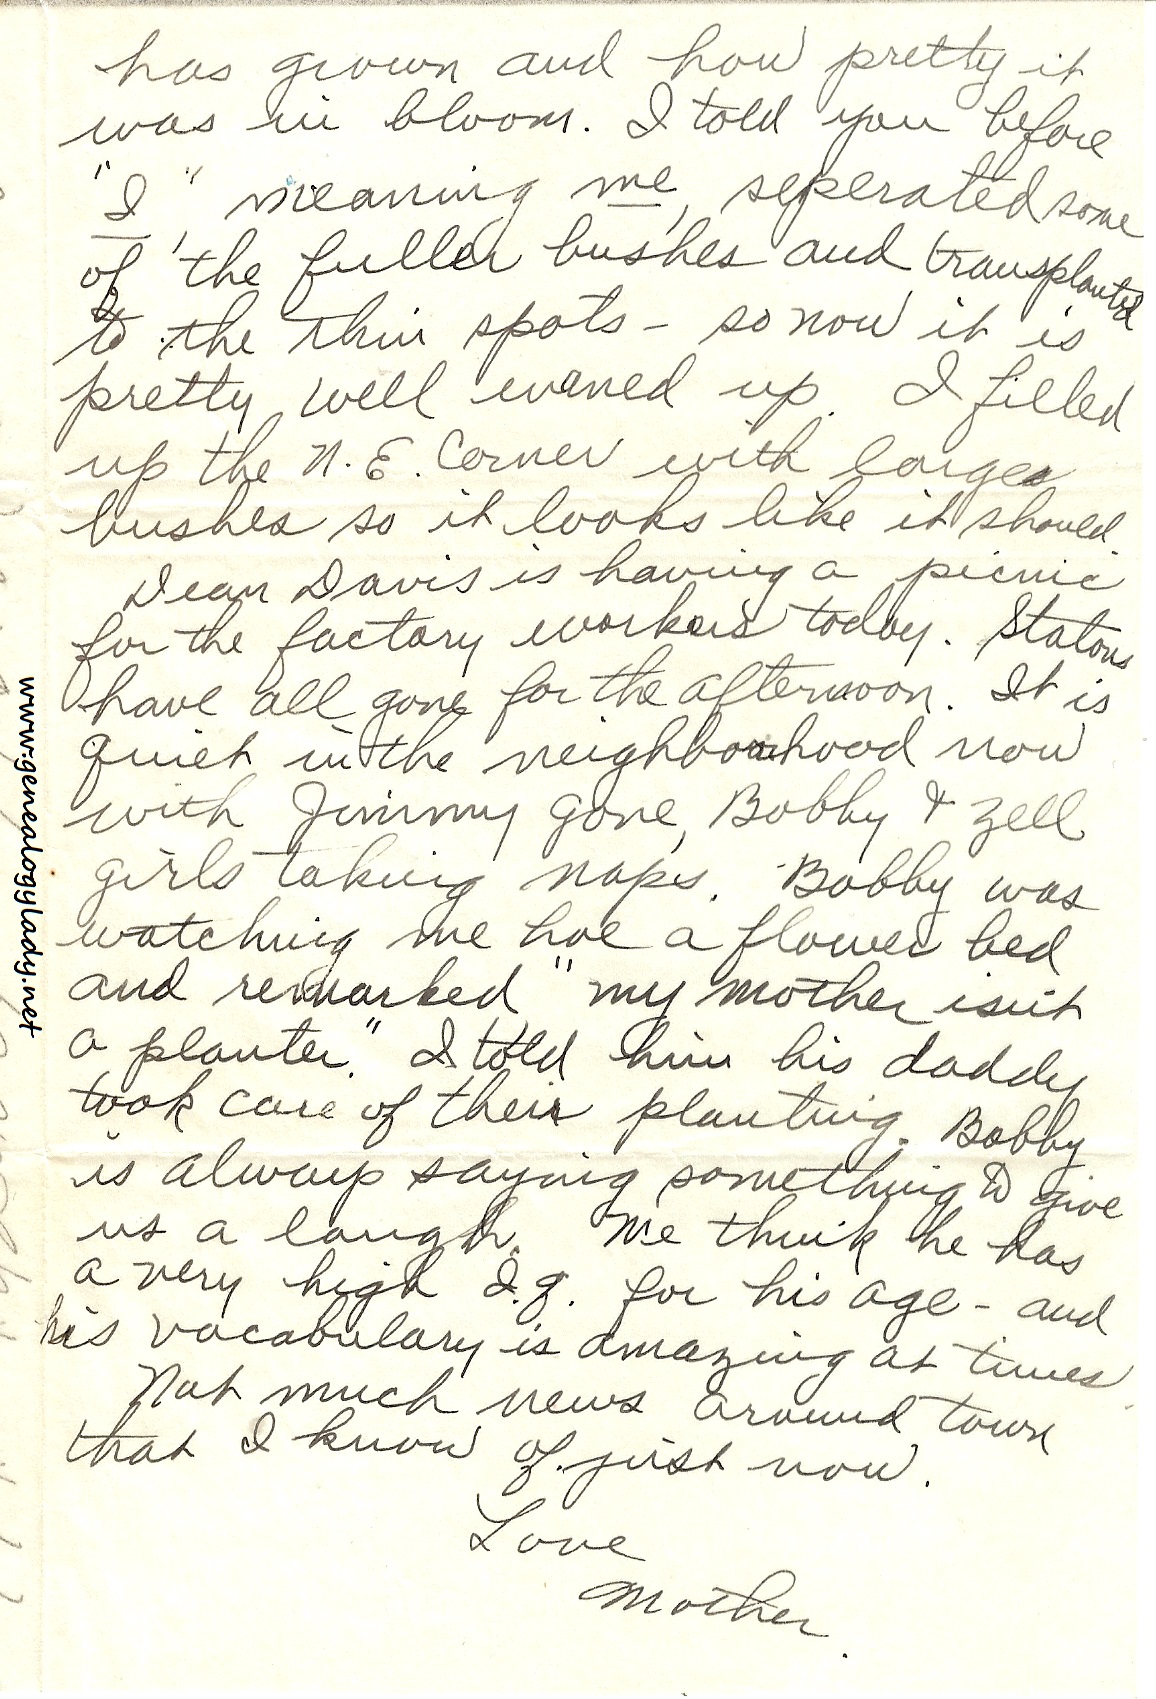 has grown and how pretty it
was in bloom. I told you before
"I" meaning me, seperated some
of the fuller bushes and transplanted
to the thin spots - so now it is
pretty well evened up. I filled
up the N.E. Corner with large
bushes so it looks like it should.
Dean Davis is having a picnic
for the factory workers today. Statons
have all gone for the afternoon. It is
quiet in the neighborhood now
with Jimmy gone, Bobby & Zell
girls taking naps. Bobby was
watching me hoe a flower bed
and remarked "my mother isn't
a planter." I told him his daddy
took care of their planting. Bobby
is always saying something to give
us a laugh. We think he has
a very high I.q. for his age - and
his vocabulary is amazing at times.
Not much news around town
that I know of just now.
Love
Mother.
www.genealogylady.net